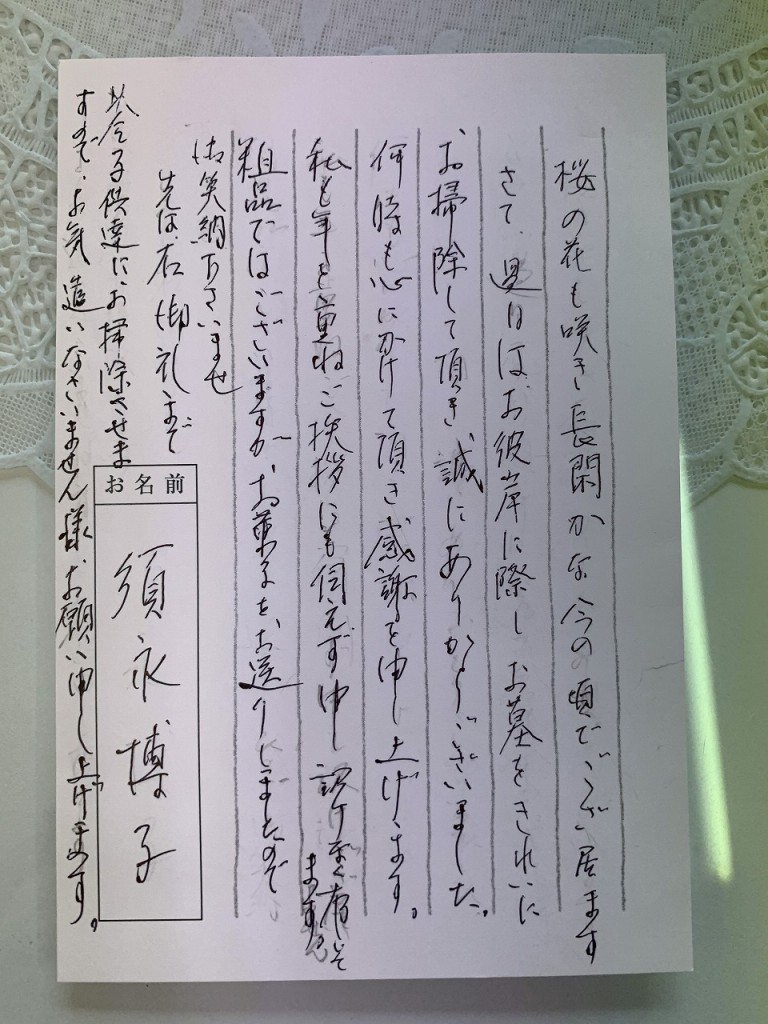 桜の花も咲き長閑かな今の頃でござ居ます
さて、過日はお彼岸に際しお墓をきれいに
お掃除して頂き誠にありがとうございました。
何時も心にかけて頂き感謝を申し上げます。
私も年を重ねご挨拶にも伺えず申し訳け
ます。
粗品ではございますがお菓子をお送りしましたので
御笑納下さいませ
先は右御礼まで
子供達にお掃除させま
すので、お気遣いなさいません様お願い申し上げます。
お名前
須永博子